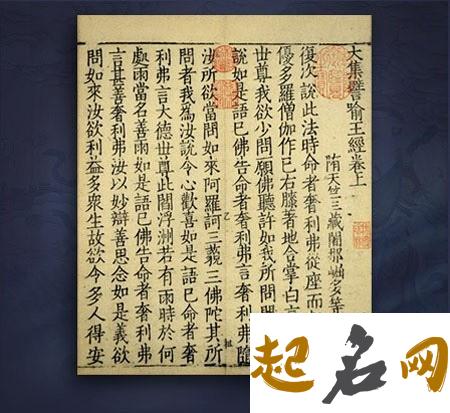 大集譬喻王經卷上
隋天竺三藏闍那崛多等
復次說此法時命者奢利弗從座而
優多羅僧伽作已右膝著地合掌白言
世尊我欲少問願佛聽許如我所問
說如是語已佛告命者奢利弗言奢利弗隨
汝所欲當問如來阿羅訶三藐三佛陀其所
問者我為汝說令心歡喜如是語已命者奢
利弗言大德世尊此閻浮洲若有雨時於何
處雨當名善雨如是語已佛告命者奢利弗
言甚善奢利弗汝以妙辯善思念如是義欲
問如來汝欲利益多衆生故欲令多人得安
起名网